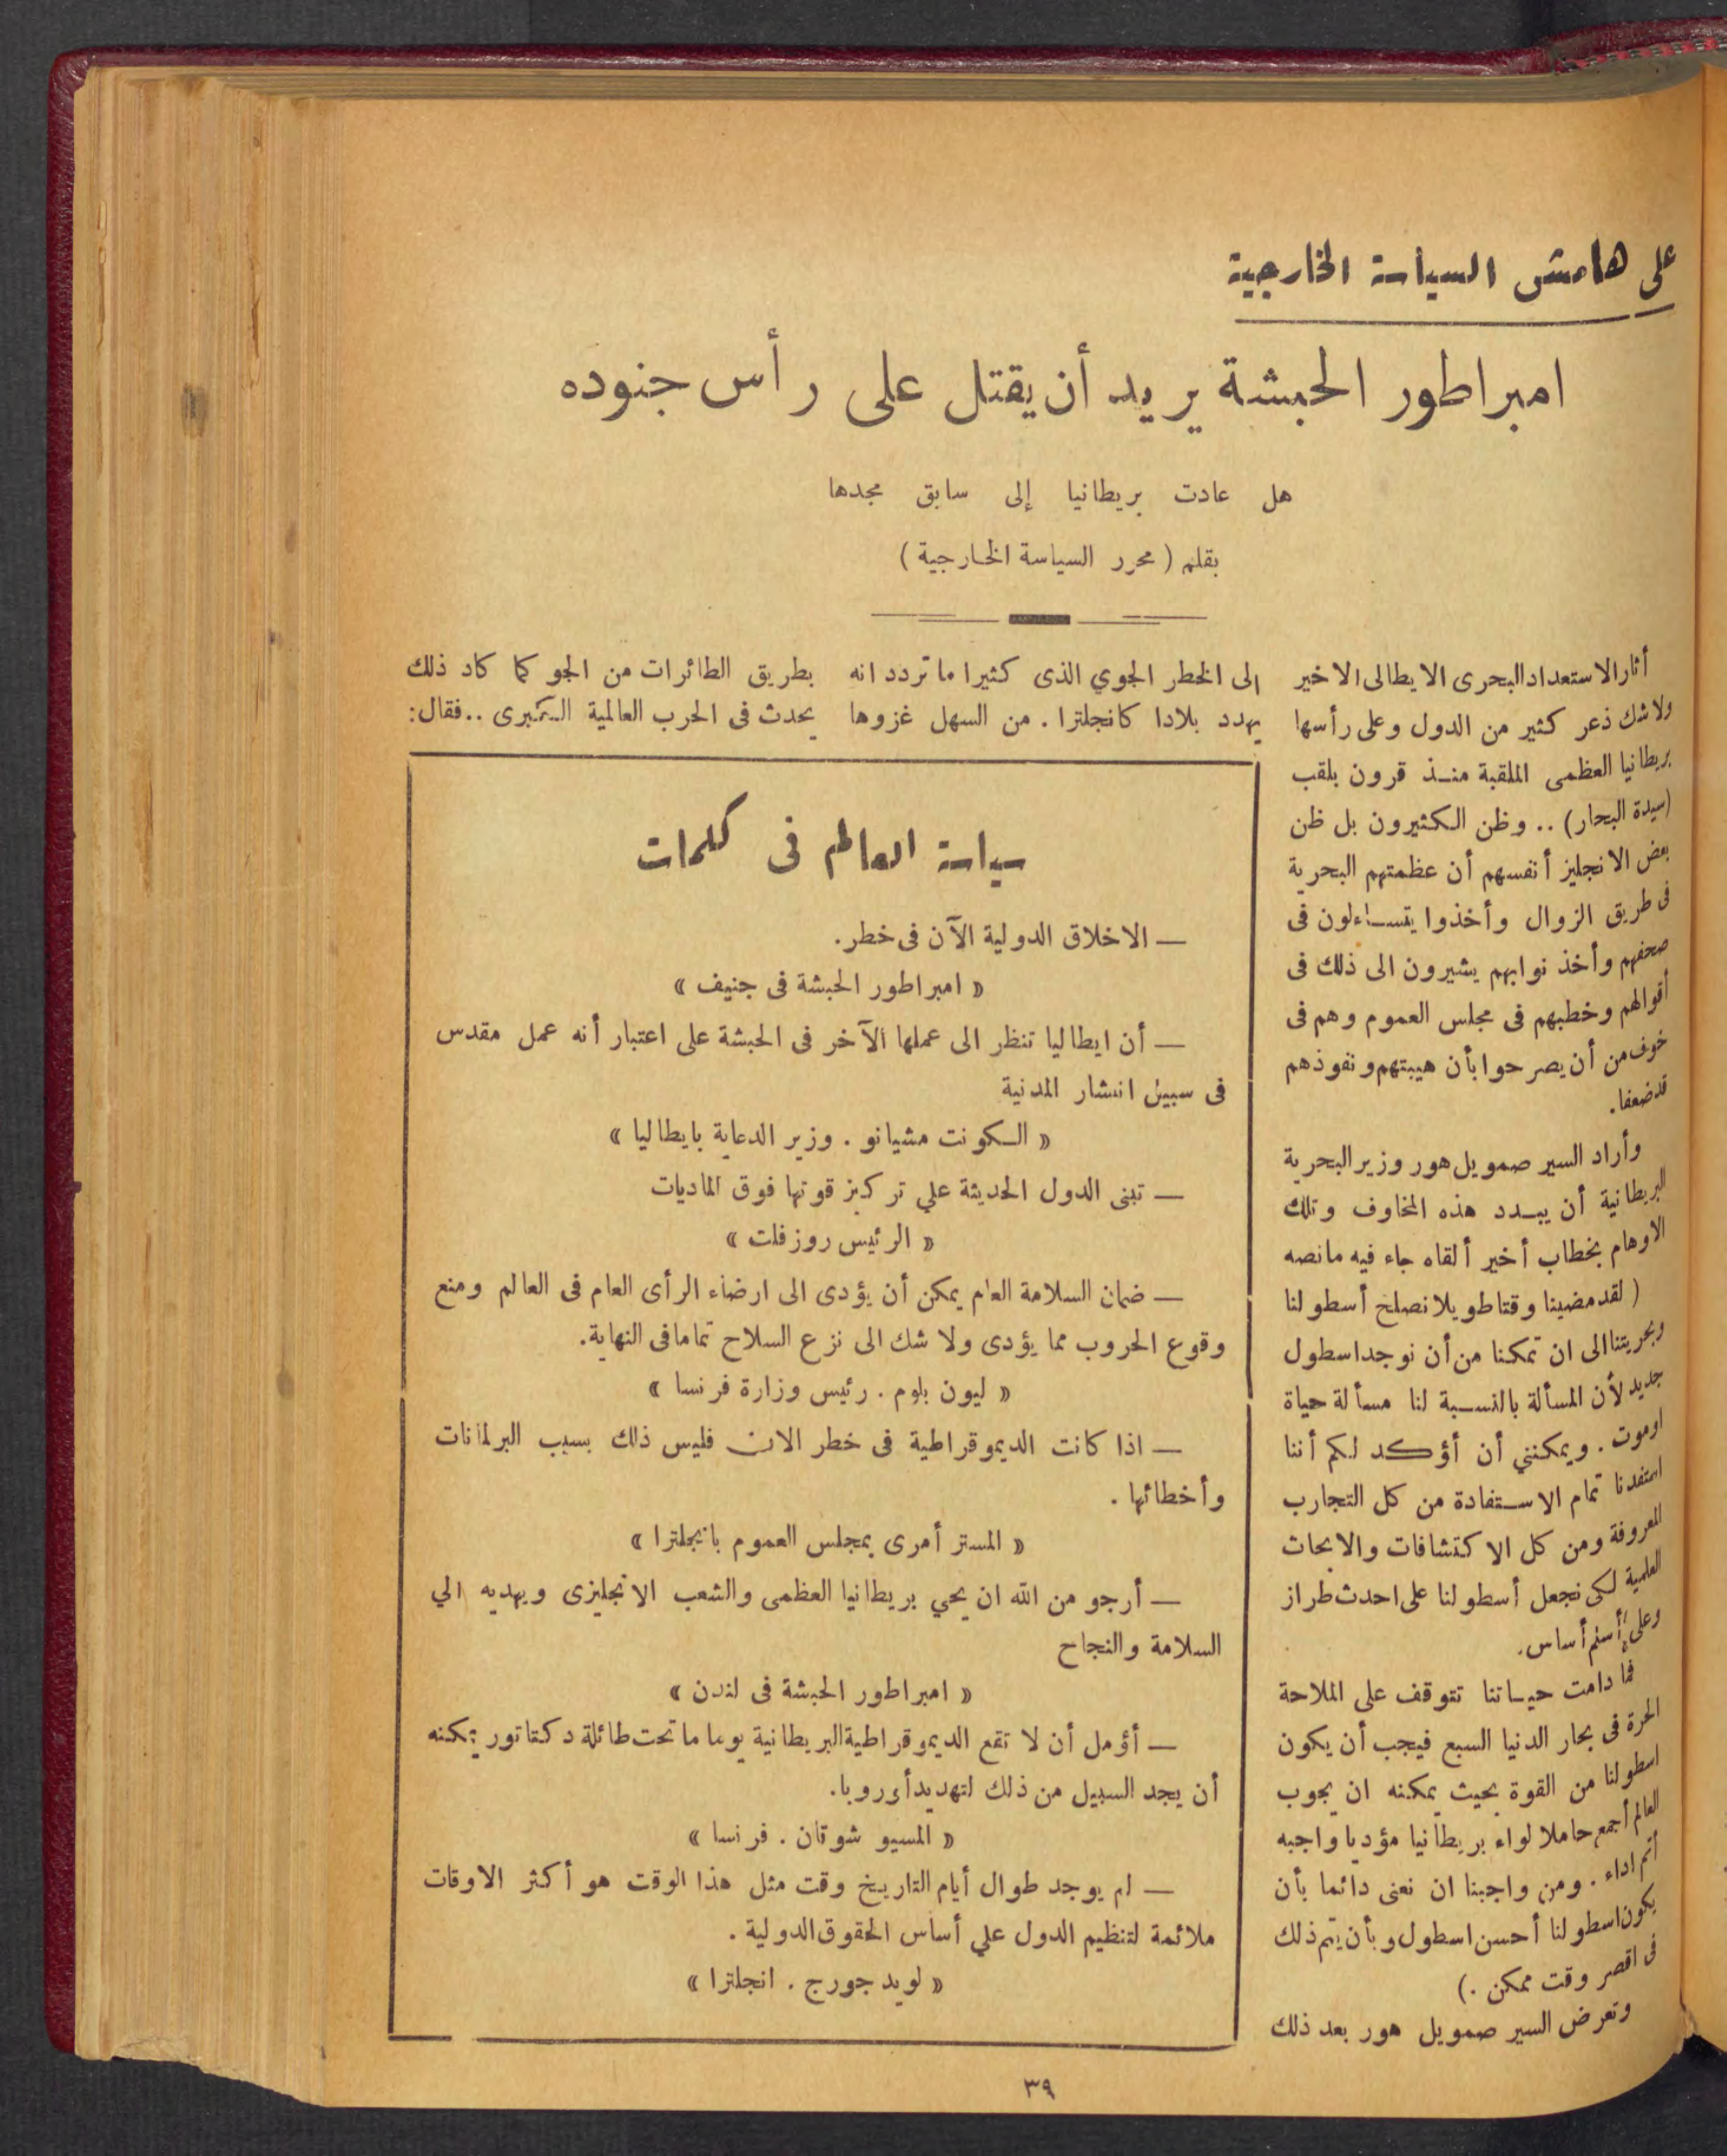 على هامش السياسة الخارجية
امبراطور الحبشة يريد أن يقتل على رأس جنوده
هل عادت بريطانيا إلى سابق مجدها
بقلم ( محرر السياسة الخارجية )
أثار الاستعداد البحرى الايطالى الاخير
ولاشك ذعر كثير من الدول وعلى رأسها
بريطانيا العظمى الملقبة منذ قرون بلقب
(سيدة البحار) .. وظن الكثيرون بل ظن
بعض الانجليز أنفسهم أن عظمتهم البحرية
فى طريق الزوال وأخذوا يتساءلون فى
صحفهم وأخذ نوابهم يشيرون الى ذلك فى
أقوالهم وخطبهم فى مجلس العموم وهم فى
خوف من أن يصرحوا بأن هيبتهم ونفوذهم
قد ضعفا.
وأراد السير صمويل هور وزير البحرية
البريطانية أن يبدد هذه المخاوف وتلك
الاوهام بخطاب أخير ألقاه جاء فيه مانصه
( لقد مضينا وقتا طويلا نصلح أسطولنا
وبحريتنا الى ان تمكنا من أن نوجد اسطول
جديد لأن المسألة بالنسبة لنا مسألة حياة
اوموت . ويمكنني أن أؤكد لكم أننا
استفدنا تمام الاستفادة من كل التجارب
المعروفة ومن كل الاكتشافات والابحاث
العلمية لكى نجعل أسطولنا على احدث طراز
وعلى أسلم أساس.
فما دامت حياتنا تتوقف على الملاحة
الحرة فى بحار الدنيا السبع فيجب أن يكون
اسطولنا من القوة بحيث يمكنه ان يجوب
العالم أجمع حاملا لواء بريطانيا مؤديا واجبه
أتم اداء . ومن واجبنا ان نعنى دائما بأن
يكون اسطولنا أحسن اسطول وبأن يتم ذلك
فى اقصر وقت ممكن .)
وتعرض السير صمويل هور بعد ذلك
الى الخطر الجوي الذى كثيرا ما تردد انه
يهدد بلادا كانجلترا . من السهل غزوها
بطريق الطائرات من الجو كما كاد ذلك
يحدث فى الحرب العالمية الكبرى .. فقال:
سياسة العالم فى كلمات
— الاخلاق الدولية الآن فى خطر.
« امبراطور الحبشة فى جنيف »
— أن ايطاليا تنظر الى عملها الآخر فى الحبشة على اعتبار أنه عمل مقدس
فى سبيل انتشار المدنية
« الكونت مشيانو . وزير الدعاية بايطاليا »
— تبنى الدول الحديثة علي تركيز قوتها فوق الماديات
« الرئيس روزفلت »
— ضمان السلامة العام يمكن أن يؤدى الى ارضاء الرأى العام فى العالم ومنع
وقوع الحروب مما يؤدى ولا شك الى نزع السلاح تماما فى النهاية.
« ليون بلوم . رئيس وزارة فرنسا »
— اذا كانت الديموقراطية فى خطر الان فليس ذلك بسبب البرلمانات
وأخطائها .
« المستر أمرى بمجلس العموم بانجلترا »
— أرجو من الله ان يحي بريطانيا العظمى والشعب الانجليزى ويهديه الي
السلامة والنجاح
« امبراطور الحبشة فى لندن »
— أؤمل أن لا تقع الديموقراطية البريطانية يوما ما تحت طائلة دكتاتور يمكنه
أن يجد السبيل من ذلك لتهديد أوروبا.
« المسيو شوتان . فرنسا »
— لم يوجد طوال أيام التاريخ وقت مثل هذا الوقت هو أكثر الاوقات
ملائمة لتنظيم الدول علي أساس الحقوق الدولية .
« لويد جورج . انجلترا »
٣٩